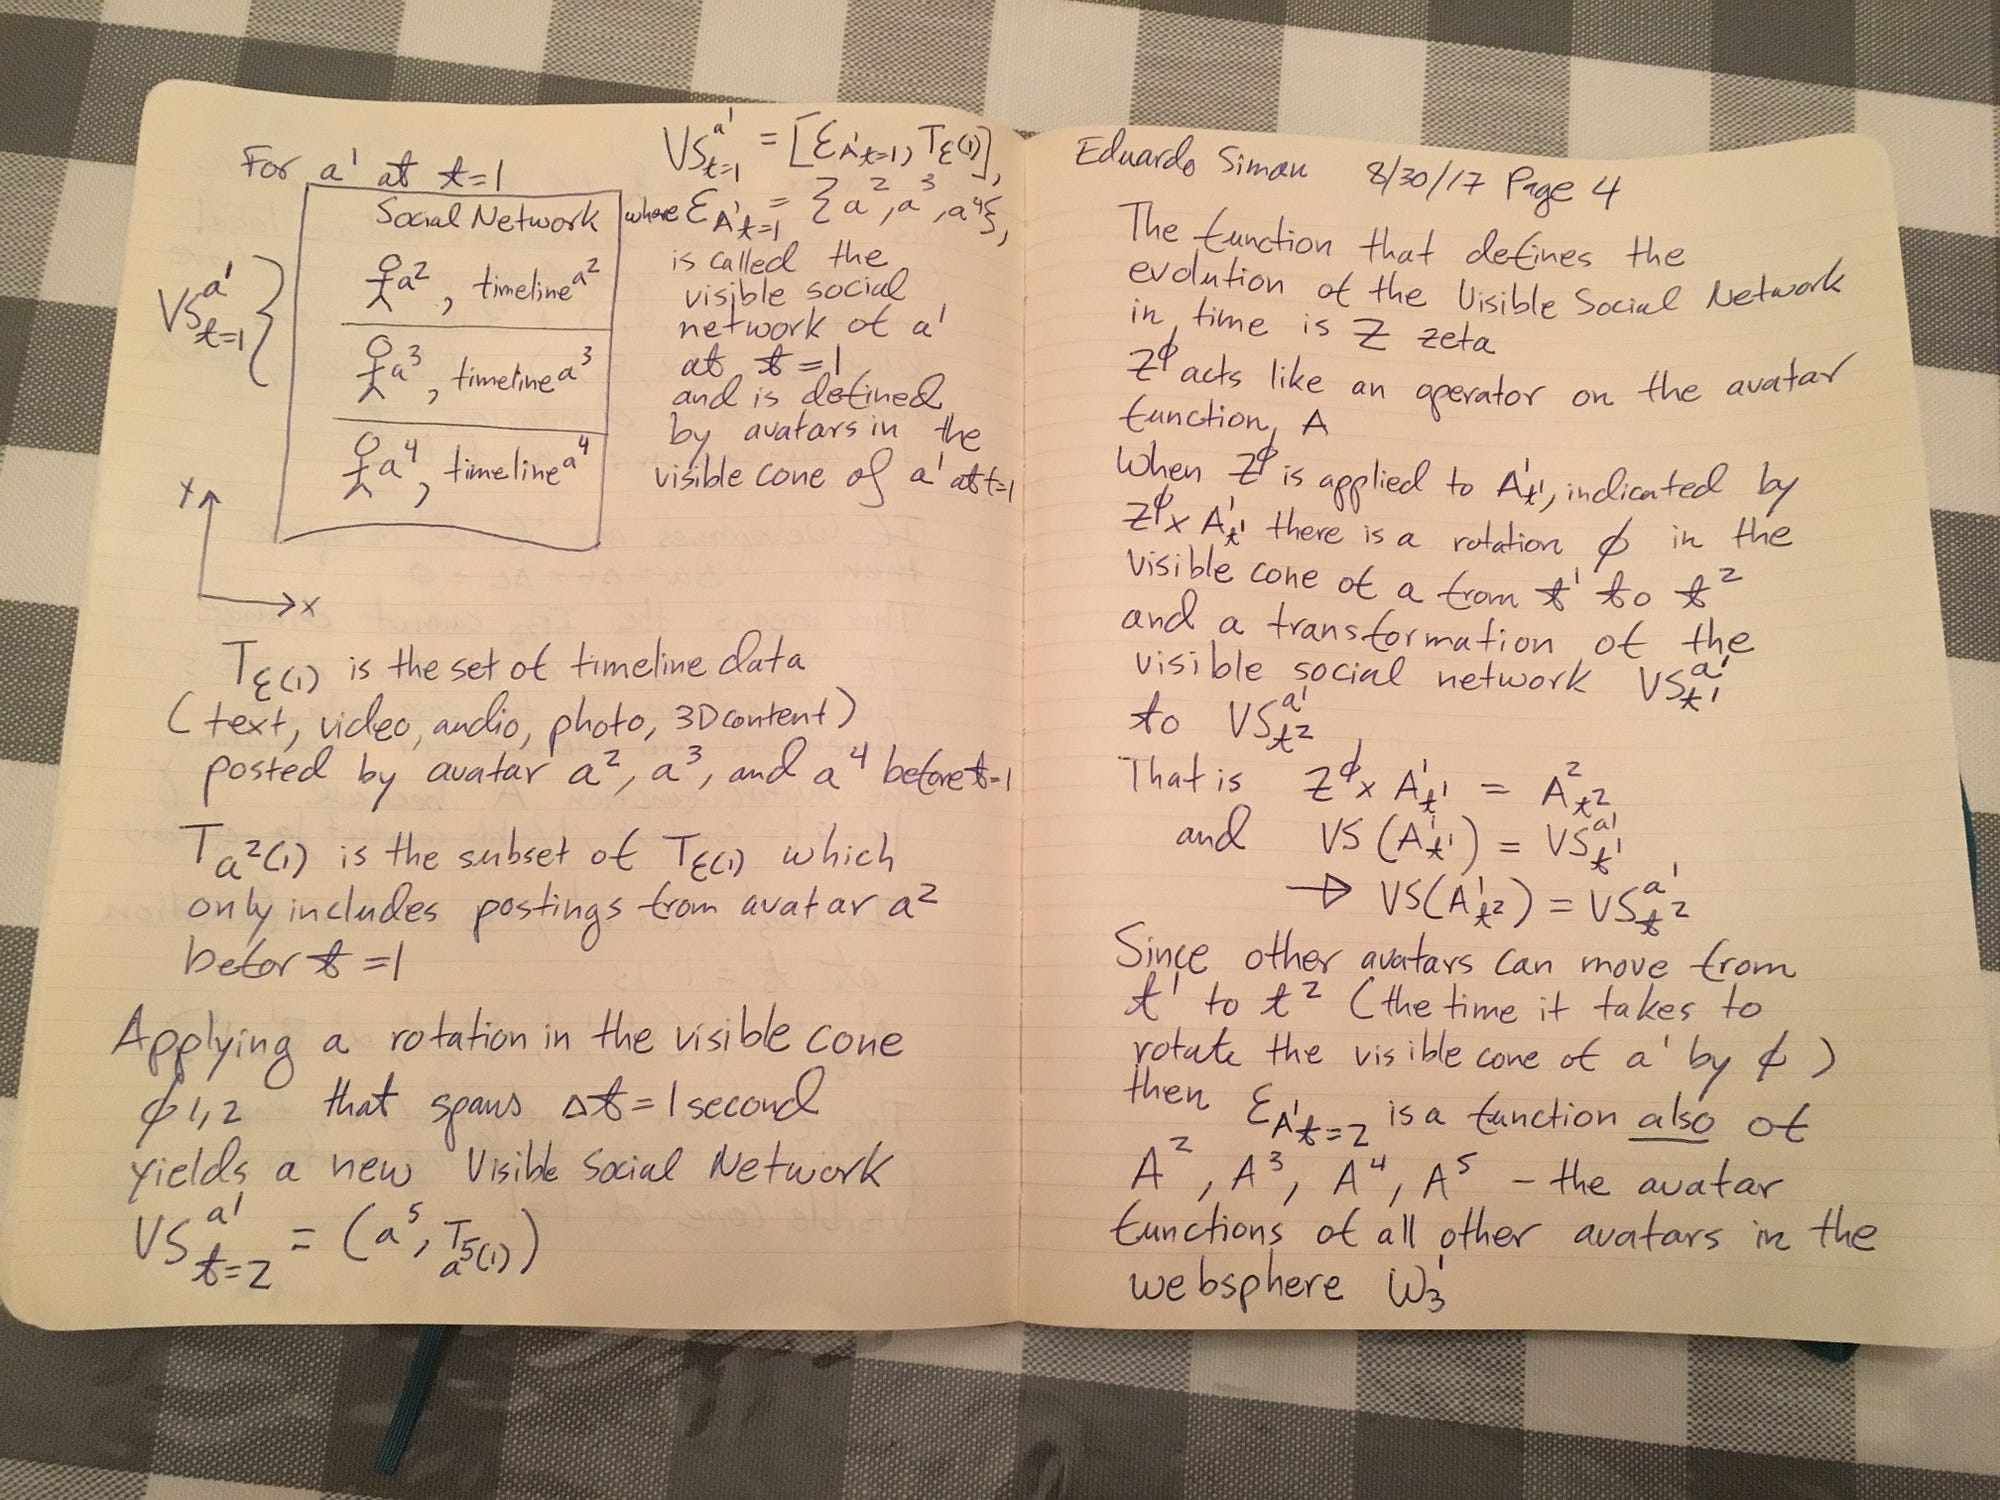 For a¹ at t=1
Social Network
a², timeline a²
a³, timeline a³
a⁴, timeline a⁴
VS^a¹_t=1
Y
X
VS^a¹_t=1 = [Ɛ_A¹t=1, T_Ɛ(1)],
where Ɛ_A¹t=1 = {a², a³, a⁴},
is called the
visible social
network of a¹
at t=1
and is defined
by avatars in the
visible cone of a¹ at t=1
T_Ɛ(1) is the set of timeline data
(text, video, audio, photo, 3D content)
posted by avatar a², a³, and a⁴ before t=1
T_a²(1) is the subset of T_Ɛ(1) which
only includes postings from avatar a²
befor t=1
Applying a rotation in the visible cone
ϕ1,2 that spans Δt=1 second
yields a new Visible Social Network
VS^a¹_t=2 = (a⁵, T_a⁵(1))
Eduardo Siman 8/30/17 Page 4
The function that defines the
evolution of the Visible Social Network
in time is Z zeta
Z^ϕ acts like an operator on the avatar
function, A
When Z^ϕ is applied to A¹_t¹, indicated by
Z^ϕ x A¹_t¹ there is a rotation ϕ in the
visible cone of a from t¹ to t²
and a transformation of the
visible social network VS^a¹_t¹
to VS^a¹_t²
That is Z^ϕ x A¹_t¹ = A²_t²
and VS(A¹_t¹) = VS^a¹_t¹
→ VS(A¹_t²) = VS^a¹_t²
Since other avatars can move from
t¹ to t² (the time it takes to
rotate the visible cone of a¹ by ϕ)
then Ɛ_A¹t=2 is a function also of
A², A³, A⁴, A⁵ – the avatar
functions of all other avatars in the
websphere W¹_3